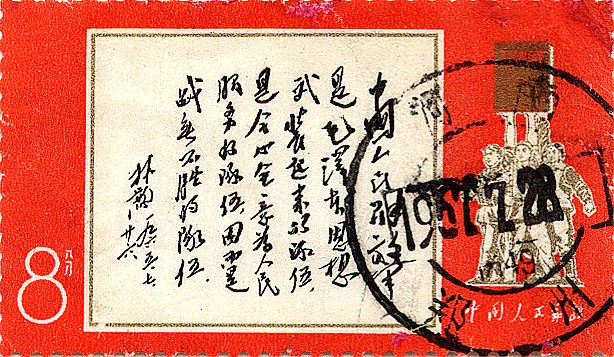 中國人民解放军
是毛澤东思想
武装起来的隊伍，
是全心全意为人民
服务的隊伍，因而是
战无不胜的隊伍。
林彪 一九六五、七、
廿六
8分
中国人民邮政
河南
7.28